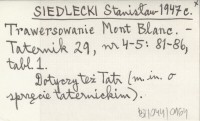 SIEDLECKI Stanisław 1947 c.*
Trawersowanie Mont Blanc. -
Taternik 29, nr 4-5: 81-86,
tabl. 1.
Dotyczy też Tatr (m.in. o
sprzęcie taternickim).